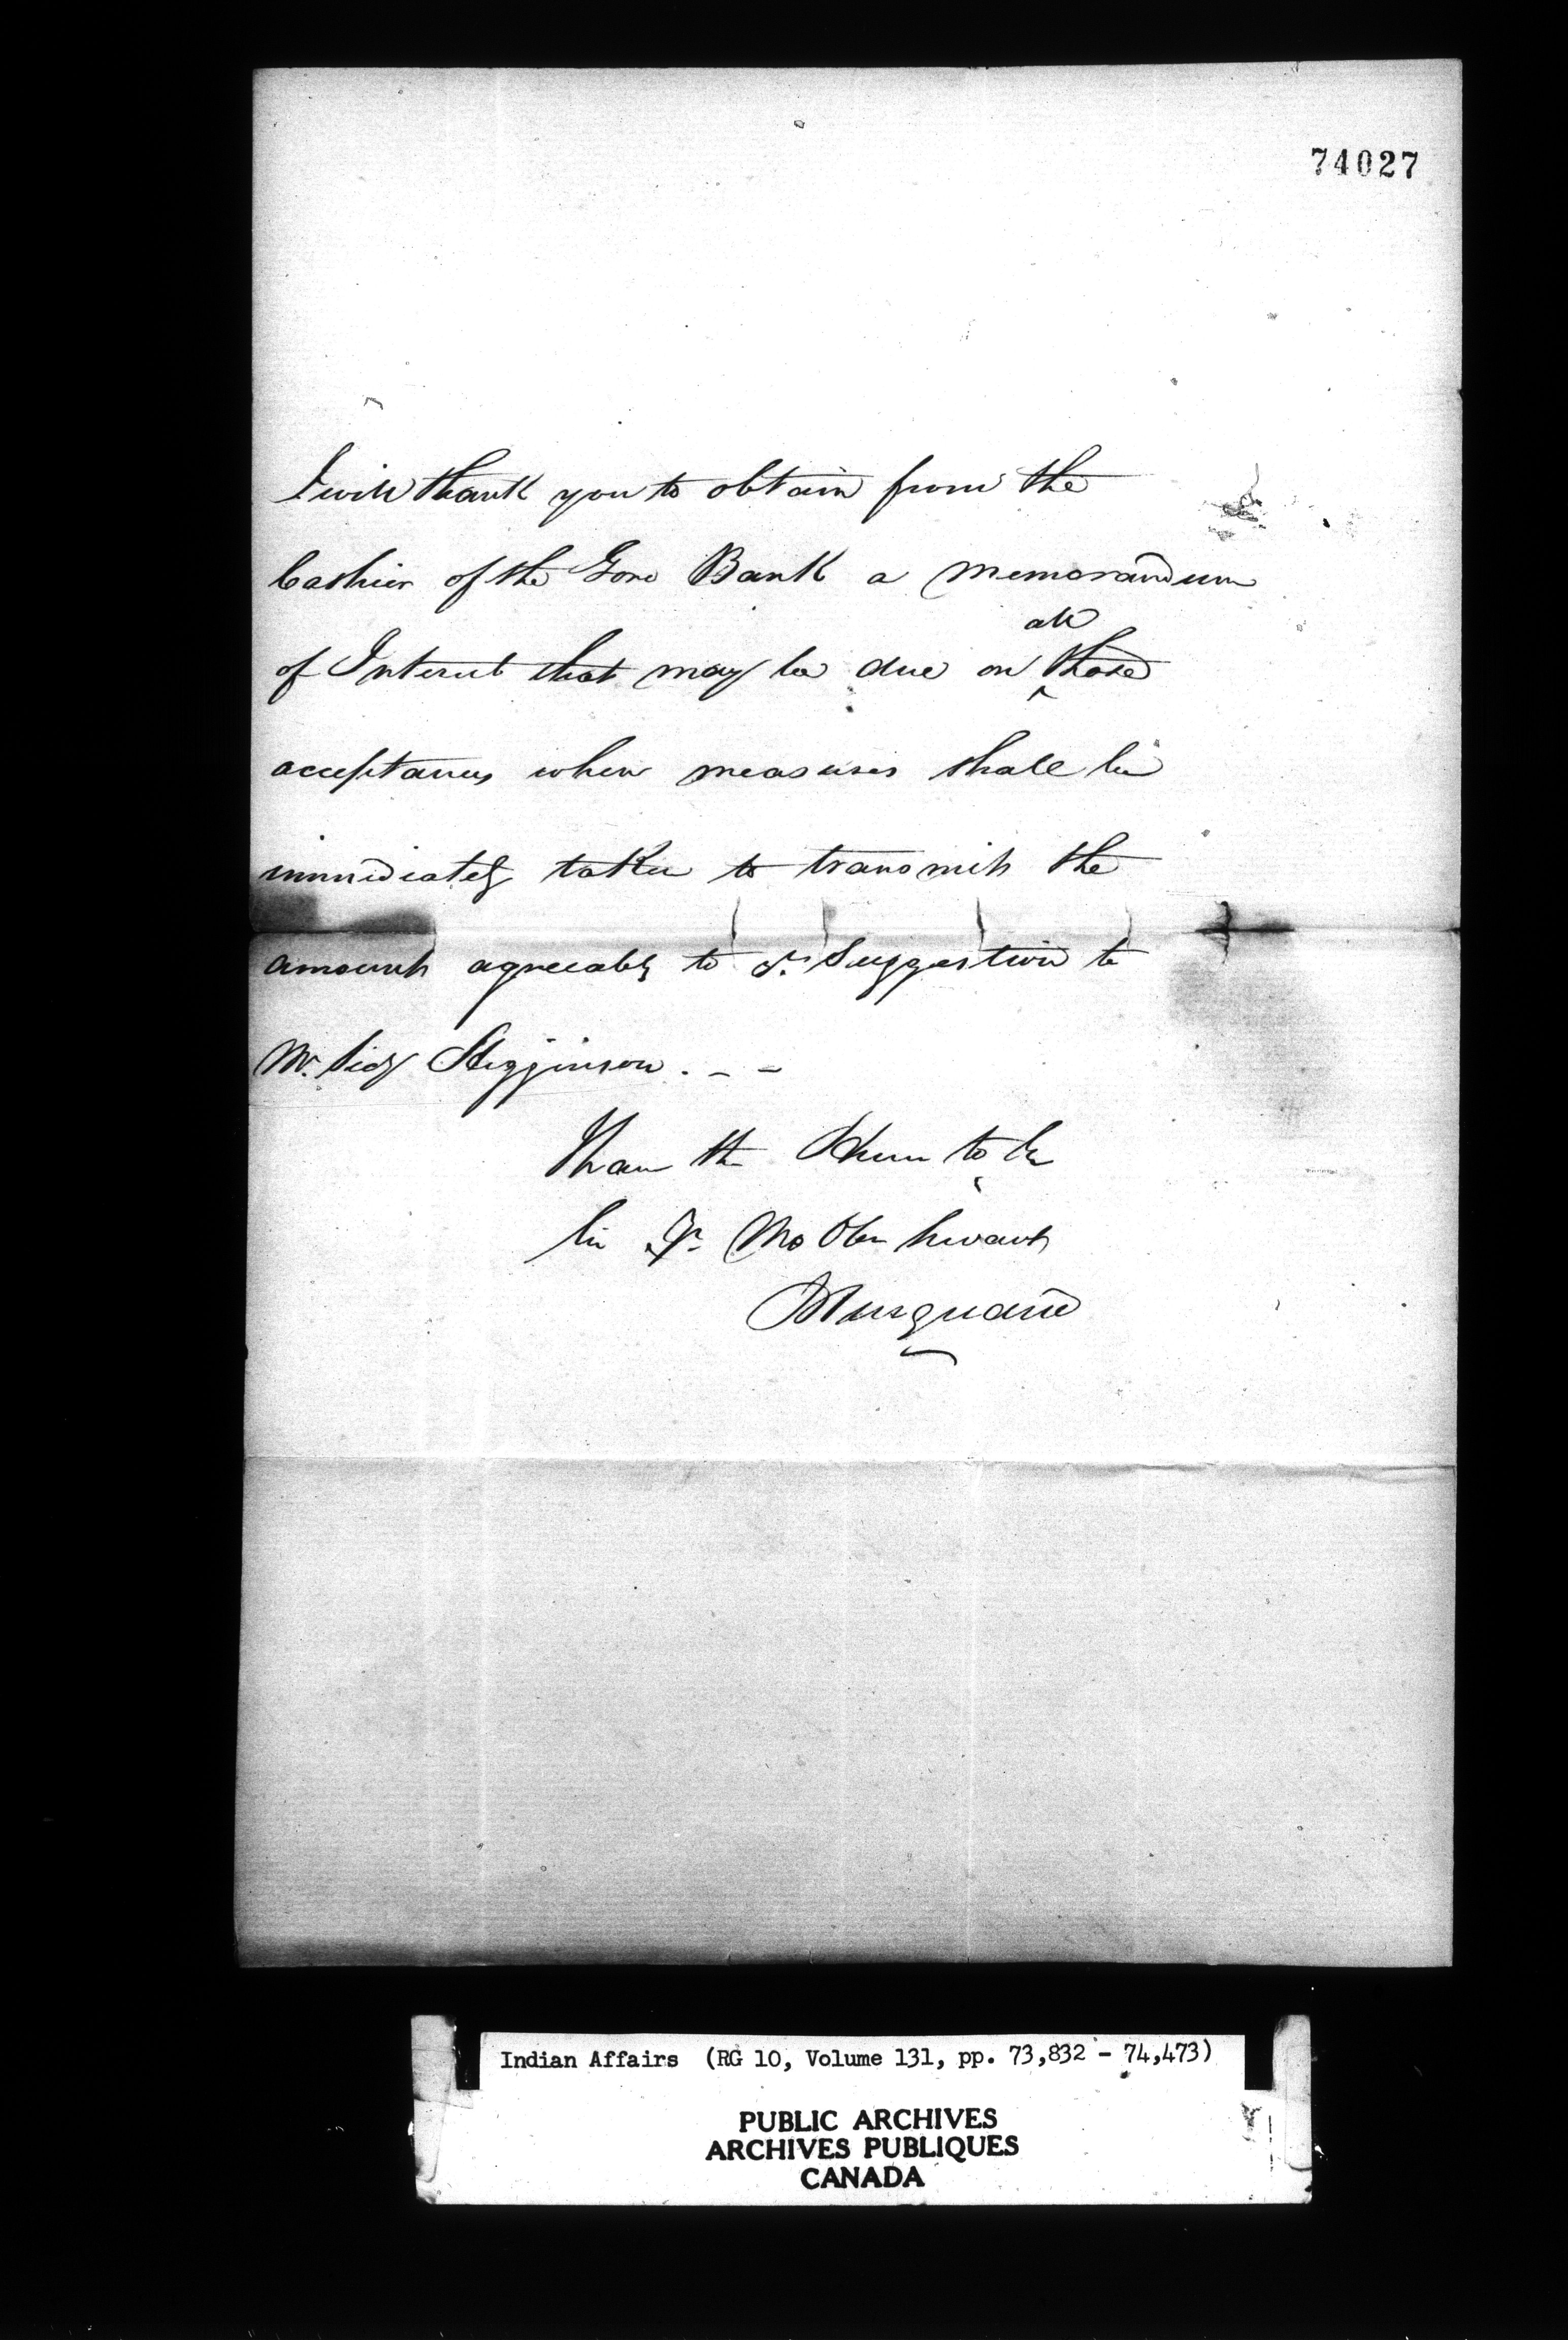 74027
I will thank you to obtain from the
Cashier of the Gore Bank a memorandum
all
of Interest that may be due on those
acceptances, when measures shall be
immediately taken to transmit the
amount agreeably to yr. Suggestion to
Mr. Secy Higginson. - -
I have the Honr to be
Sir Yr. Mo Obn Servant
Indian Affairs (RG 10, Volume 131, pp. 73,832 - 74,473)
PUBLIC ARCHIVES
ARCHIVES PUBLIQUES
CANADA